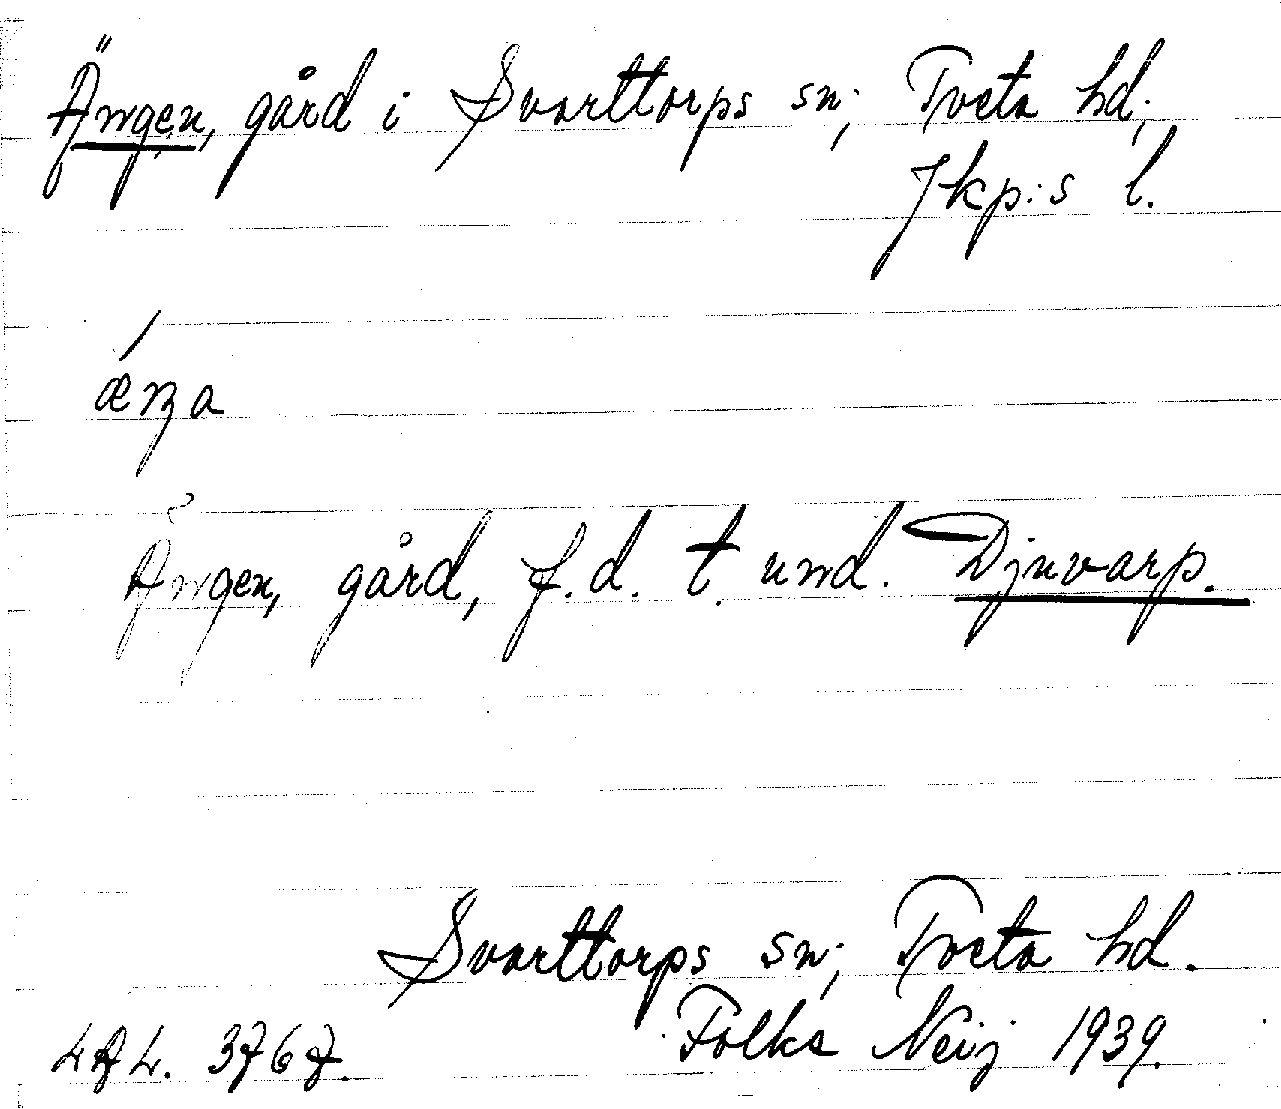 Ängen, gård i Svarttorps sn; Tveta hd;
Jkp:s l.
ǽŋa
Ängen, gård, f.d. t. und. Djuvarp.
Svarttorps sn; Tveta hd.
LAL. 3767. Folke Neij 1939.